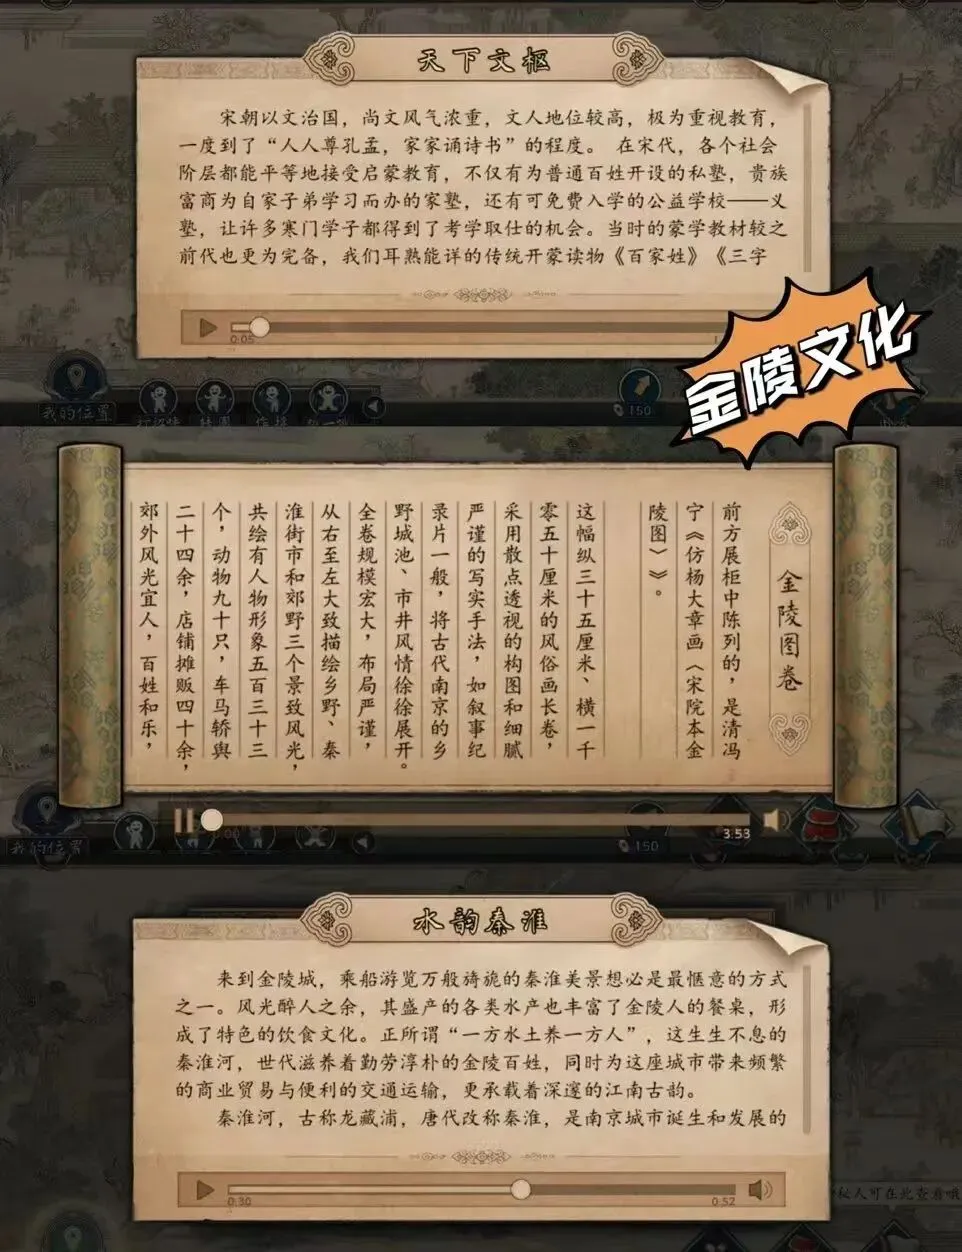 天下文枢
宋朝以文治国，尚文风气浓重，文人地位较高，极为重视教育，
一度到了“人人尊孔孟，家家诵诗书”的程度。 在宋代，各个社会
阶层都能平等地接受启蒙教育，不仅有为普通百姓开设的私塾，贵族
富商为自家子弟学习而办的家塾，还有可免费入学的公益学校——义
塾，让许多寒门学子都得到了考学取仕的机会。当时的蒙学教材较之
前代也更为完备，我们耳熟能详的传统开蒙读物《百家姓》《三字
0:05
金陵文化
我的位置
150
金陵图卷
前方展柜中陈列的，是清冯
宁《仿杨大章画〈宋院本金
陵图〉》。
这幅纵三十五厘米、横一千
零五十厘米的风俗画长卷，
采用散点透视的构图和细腻
严谨的写实手法，如叙事纪
录片一般，将古代南京的乡
野城池、市井风情徐徐展开。
全卷规模宏大，布局严谨，
从右至左大致描绘乡野、秦
淮街市和郊野三个景致风光，
共绘有人物形象五百三十三
个，动物九十只，车马轿舆
二十四余，店铺摊贩四十余，
郊外风光宜人，百姓和乐，
0:00
3:53
我的位置
150
水韵秦淮
来到金陵城，乘船游览万般旖旎的秦淮美景想必是最惬意的方式
之一。风光醉人之余，其盛产的各类水产也丰富了金陵人的餐桌，形
成了特色的饮食文化。正所谓“一方水土养一方人”，这生生不息的
秦淮河，世代滋养着勤劳淳朴的金陵百姓，同时为这座城市带来频繁
的商业贸易与便利的交通运输，更承载着深邃的江南古韵。
秦淮河，古称龙藏浦，唐代改称秦淮，是南京城市诞生和发展的
0:30
0:52
人可在此查看哦